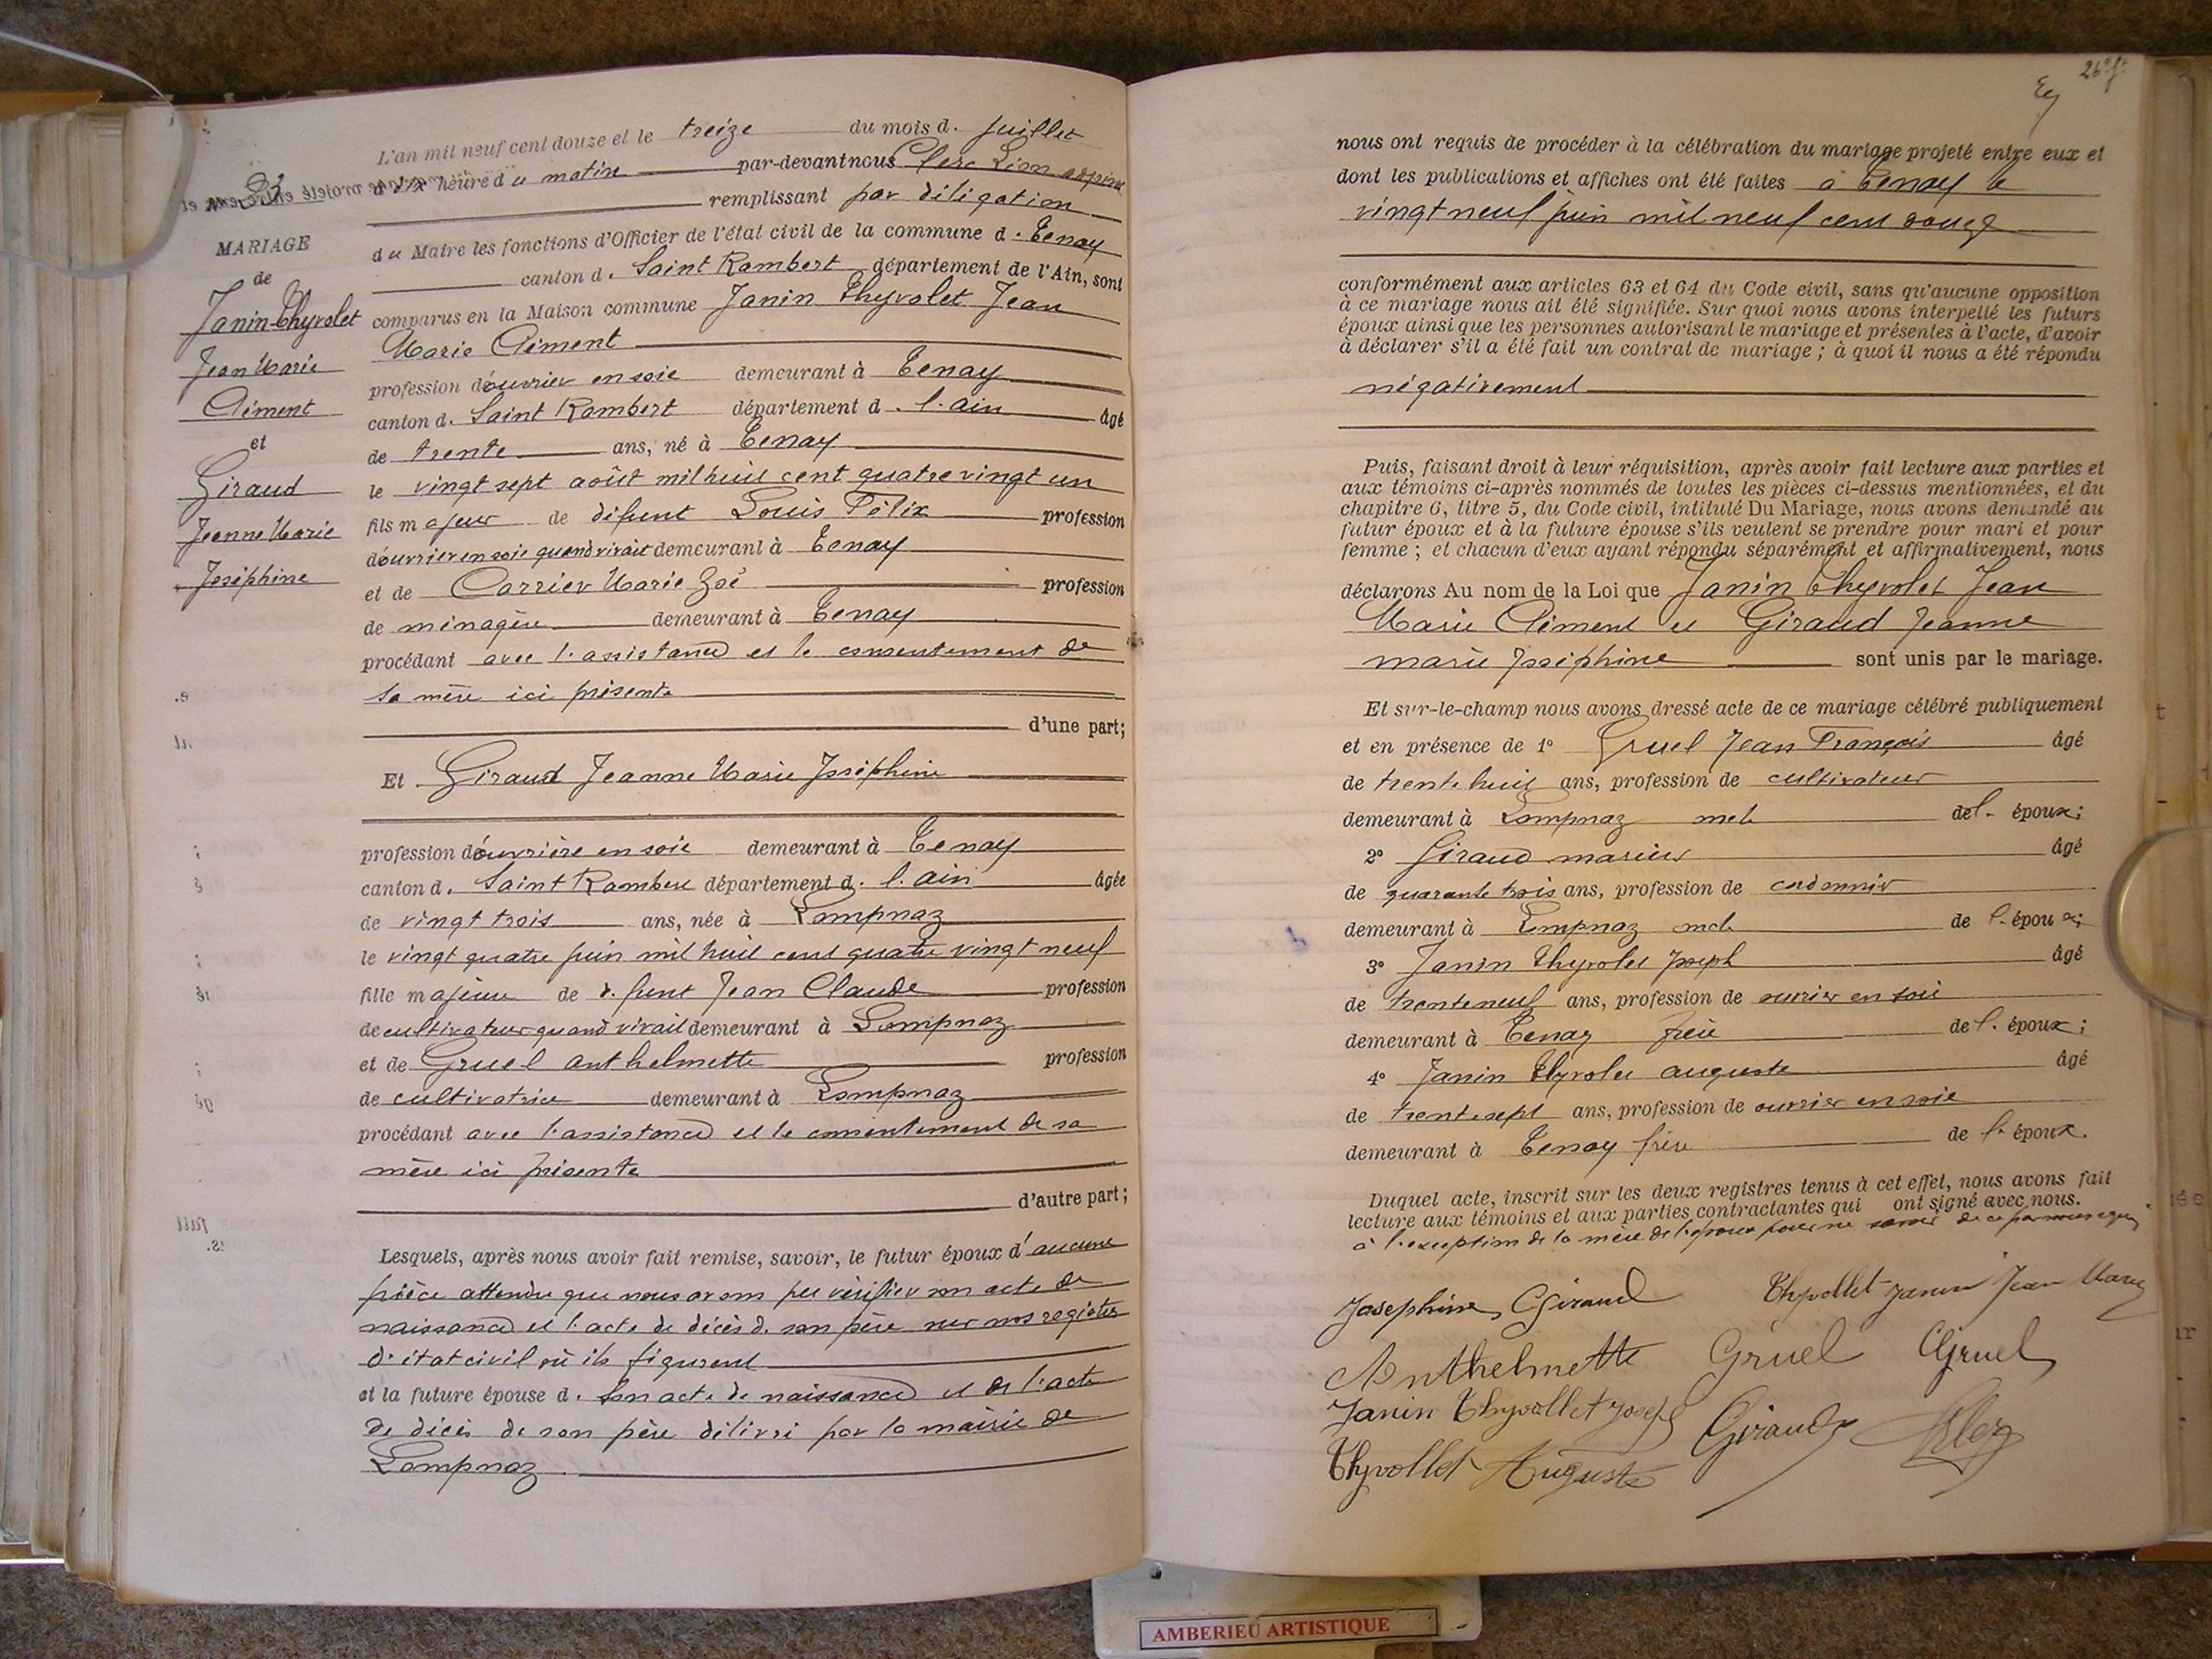 L'an mil neuf cent douze et le treize du mois d. juillet
à dix heure du matin par-devant nous Clerc Léon adjoint
remplissant par déligation
du Maire les fonctions d'Officier de l'état civil de la commune d. Tenay
canton d. Saint Rambert département de l'Ain, sont
comparus en la Maison commune Janin Thyvolet Jean
Marie Clément
profession d'ouvrier en soie demeurant à Tenay
canton d. Saint Rambert département d. l. ain âgé
de trente ans, né à Tenay
le vingt sept août mil huit cent quatre vingt un
fils majeur de défunt Louis Félix profession
d'ouvrier en soie quand vivait demeurant à Tenay
et de Carrier Marie Zoé profession
de ménagère demeurant à Tenay
procédant avec l'assistance et le consentement de
sa mère ici présente
d'une part;
Et Giraud Jeanne Marie Joséphine
profession d'ouvrière en soie demeurant à Tenay
canton d. Saint Rambert département d. l. ain âgée
de vingt trois ans, née à Lompnaz
le vingt quatre juin mil huit cent quatre vingt neuf
fille majeure de défunt Jean Claude profession
de cultivateur quand vivait demeurant à Lompnaz
et de Gruel Anthelmette profession
de cultivatrice demeurant à Lompnaz
procédant avec l'assistance et le consentement de sa
mère ici présente
d'autre part;
Lesquels, après nous avoir fait remise, savoir, le futur époux d'aucune
pièce attendu que nous avons pu vérifier son acte de
naissance et l'acte de décès d. son père sur nos registres
d'état civil où ils figurent
et la future épouse d. son acte de naissance et de l'acte
de décès de son père délivré par la mairie de
Lompnaz
MARIAGE
de
Janin-Thyvolet
Jean Marie
Clément
et
Giraud
Jeanne Marie
Joséphine
26
nous ont requis de procéder à la célébration du mariage projeté entre eux et
dont les publications et affiches ont été faites à Tenay le
vingt neuf juin mil neuf cent douze
conformément aux articles 63 et 64 du Code civil, sans qu'aucune opposition
à ce mariage nous ait été signifiée. Sur quoi nous avons interpellé les futurs
époux ainsi que les personnes autorisant le mariage et présentes à l'acte, d'avoir
à déclarer s'il a été fait un contrat de mariage ; à quoi il nous a été répondu
négativement
Puis, faisant droit à leur réquisition, après avoir fait lecture aux parties et
aux témoins ci-après nommés de toutes les pièces ci-dessus mentionnées, et du
chapitre 6, titre 5, du Code civil, intitulé Du Mariage, nous avons demandé au
futur époux et à la future épouse s'ils veulent se prendre pour mari et pour
femme ; et chacun d'eux ayant répondu séparément et affirmativement, nous
déclarons Au nom de la Loi que Janin Thyvolet Jean
Marie Clément et Giraud Jeanne
marie Joséphine sont unis par le mariage.
Et sur-le-champ nous avons dressé acte de ce mariage célébré publiquement
et en présence de 1° Gruel Jean François âgé
de trente huit ans, profession de cultivateur
demeurant à Lompnaz de l. époux;
2° Giraud marius âgé
de quarante trois ans, profession de cordonnier
demeurant à Lompnaz de l. époux;
3° Janin Thyvolet Joseph âgé
de trente neuf ans, profession de ouvrier en soie
demeurant à Tenay frère de l. époux;
4° Janin Thyvolet auguste âgé
de trente sept ans, profession de ouvrier en soie
demeurant à Tenay frère de l. époux.
Duquel acte, inscrit sur les deux registres tenus à cet effet, nous avons fait
lecture aux témoins et aux parties contractantes qui ont signé avec nous.
à l'exception de la mère de l'époux pour ne savoir de ce par nous requis
Josephine Giraud Thyvollet Janin Jean Marie
Anthelmette Gruel Gruel
Janin Thyvollet Joseph Giraud Clerc
Thyvollet Auguste
AMBERIEU ARTISTIQUE